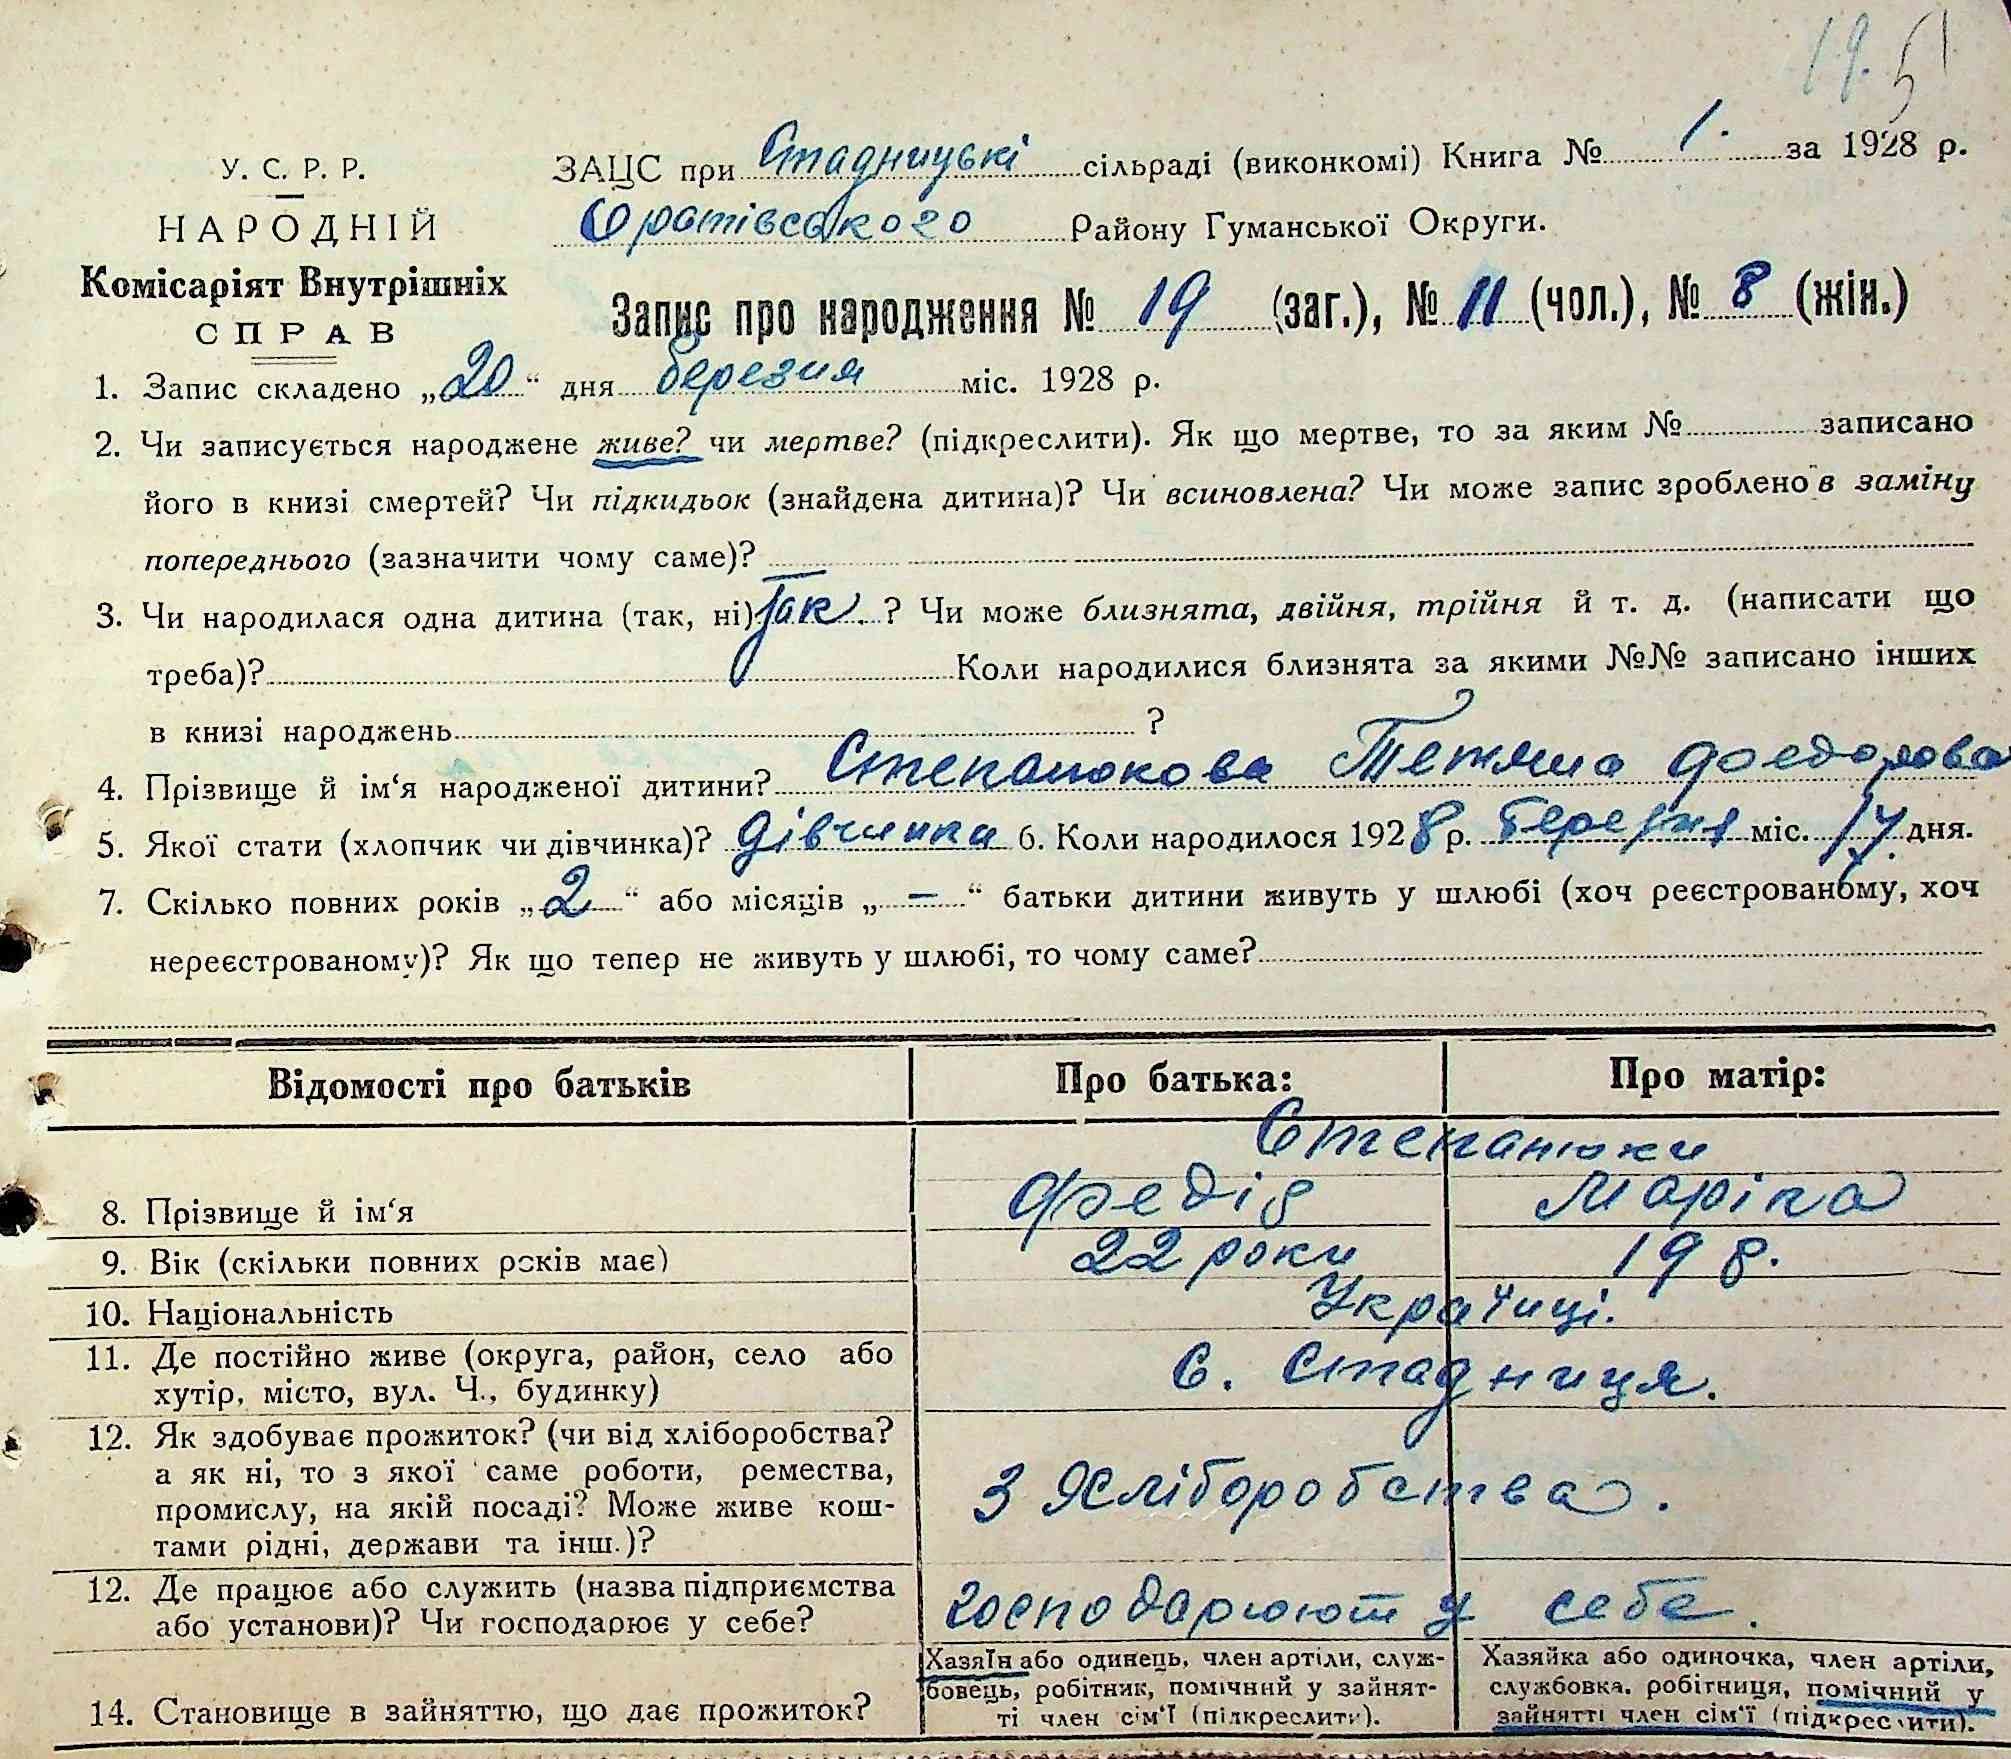 19. 51
У. С. Р. Р.
НАРОДНІЙ
Комісаріят Внутрішніх
СПРАВ
ЗАЦС при Стадницькі сільраді (виконкомі) Книга № 1. за 1928 р.
Оратівського Району Гуманської Округи.
Запис про народження № 19 (заг.), № 11 (чол.), № 8 (жін.)
1. Запис складено „20“ дня березня міс. 1928 р.
2. Чи записується народжене живе? чи мертве? (підкреслити). Як що мертве, то за яким № записано
його в книзі смертей? Чи підкидьок (знайдена дитина)? Чи всиновлена? Чи може запис зроблено в заміну
попереднього (зазначити чому саме)?
3. Чи народилася одна дитина (так, ні) Так. ? Чи може близнята, двійня, трійня й т. д. (написати що
треба)? Коли народилися близнята за якими №№ записано інших
в книзі народжень ?
4. Прізвище й ім‘я народженої дитини? Степанюкова Тетяна Фоедорова
5. Якої стати (хлопчик чи дівчинка)? дівчинка 6. Коли народилося 1928 р. березня міс. 17 дня.
7. Скілько повних років „2“ або місяців „—“ батьки дитини живуть у шлюбі (хоч реєстрованому, хоч
нереєстрованому)? Як що тепер не живуть у шлюбі, то чому саме?
Відомості про батьків Про батька: Про матір:
Степанюки
8. Прізвище й ім‘я Федір Маріка
9. Вік (скільки повних років має) 22 роки 19 р.
10. Національність Українці.
11. Де постійно живе (округа, район, село або
хутір, місто, вул. Ч., будинку) С. Стадниця.
12. Як здобуває прожиток? (чи від хліборобства?
а як ні, то з якої саме роботи, ремества,
промислу, на якій посаді? Може живе кош-
тами рідні, держави та інш.)? З Хліборобства.
12. Де працює або служить (назва підприємства
або установи)? Чи господарює у себе? господарюют у себе.
14. Становище в зайняттю, що дає прожиток?
Хазяїн або одинець, член артіли, служ-
бовець, робітник, помічний у зайнят-
ті член сім‘ї (підкреслити).
Хазяйка або одиночка, член артіли,
службовка. робітниця, помічний у
зайнятті член сім‘ї (підкреслити).